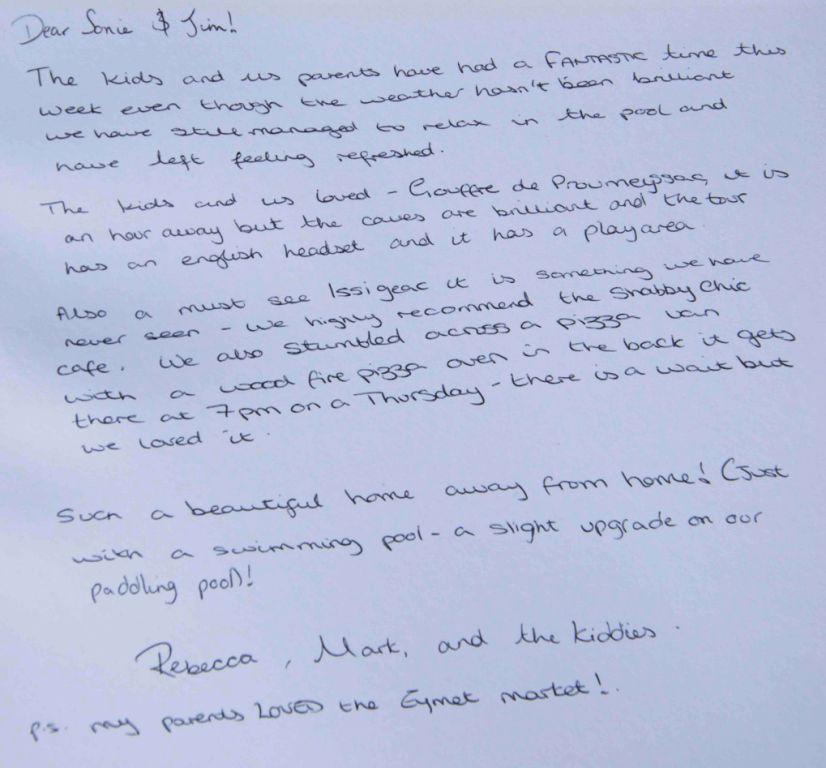 Dear Sonie & Jim!
The kids and us parents have had a FANTASTIC time this
week even though the weather hasn't been brilliant
we have still managed to relax in the pool and
have left feeling refreshed.
The kids and us loved - Gouffre de Proumeyssac, it is
an hour away but the caves are brilliant and the tour
has an english headset and it has a playarea.
Also a must see Issigeac it is something we have
never seen - we highly recommend the Shabby Chic
cafe. We also stumbled across a pizza van
with a wood fire pizza oven in the back it gets
there at 7pm on a Thursday - there is a wait but
we loved it.
Such a beautiful home away from home! (Just
with a swimming pool - a slight upgrade on our
paddling pool)!
Rebecca, Mark, and the kiddies.
p.s. my parents LOVED the Eymet market!.